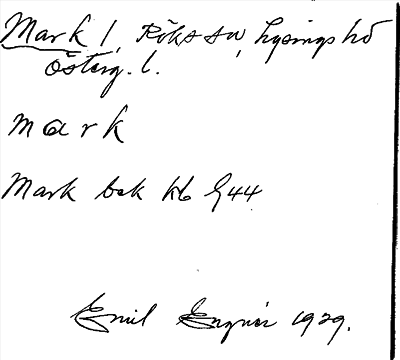 Mark 1, Röks sn, Lysings hd
Österg. l.
mark
Mark bek kb 944
Emil 1929.